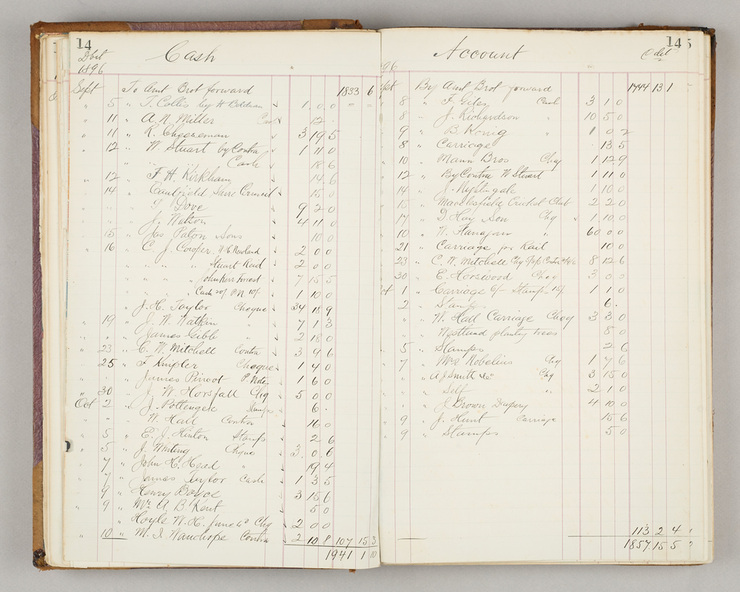 14
Dbit Cash
1896
Sept To Amt Brot forward 1833 6
" 5 " T. Collis by W 1 0 0
" 11 " A. N. Miller Cash 12
" 11 " K. Cheeseman 3 19 5
" 12 " W Stuart by Contra 1 11 0
" " Cash 18 6
" 12 " F. H. Kirkham 14 6
" 14 " Caulfield Council 15 0
" T. Dove 9 2 0
" J. Watson 4 11 0
" 15 " Jas Paton Sons 10 0
" 16 " C. J. Cooper 2 0 0
" " " Stuart Kent 2 0 0
" " " 7 15 5
" " " Cash 1 10 0
J. H. Taylor Cheque 34 18 9
" 19 " J. W. Watkin 7 1 3
" " James Gibb 2 18 0
" 23 " C. W. Mitchell Contra 3 9 6
" 25 " F Knigler Cheque 1 4 0
" James Pirvot P. Note 1 6 0
" 30 " J. W. Horsfall Chq 5 0 0
Oct 2 " J. Nottingale Stamps 6
" " W. Hall Contra 10 0
" 5 " E. J. Hinton Stamps 2 6
" 5 " J. Cheque 3 0 6
" 7 " John H. Head " 19 4
" 7 " James Taylor Cash 1 3 5
" 9 " Henry Boyce 3 15 6
" 9 " Mr A. B. Kent 5 0
Hoyle W. H. Chq 2 0 0
" 10 " M. J. Wauchope Contra 2 10 8 107 15 3
1941 1
145
Account Cdit
96
pt By Amt Brot forward 1744 13 1
" 8 " T. Cash 3 1 0
" 8 " J. Richardson " 10 5 0
" 9 " B. Konig " 1 0 2
" 8 " Carriage 13 5
" 10 " Mann Bros Chq 1 12 9
" 12 " By Contra W Stuart 1 11 0
" 14 " J. Nightingale 1 10 0
" 15 " Central Club 2 2 0
" 17 " D Hay Son Chq 1 10 0
" 10 " W. Flanagan 60 0 0
" 21 " Carriage for Kent 10 0
" 23 " C. W. Mitchell Chq Contra 8 12 6
" 30 " E. Horswood Chq 3 0 0
1 " Carriage & Stamps 1 1 0
" 2 " Stamps 6
" " W. Hall Carriage Chq 3 3 0
" " planting trees 5 0
" 5 " Stamps 2 6
" 7 " Mrs Robelius Chq 1 7 6
" " A J Smith &c Chq 3 15 0
" " Self " 2 1 0
" " J. Brown Drapery 4 10 0
" 9 " J. Hunt Carriage 15 6
" 9 " Stamps 5 0
113 2 4
1857 15 5